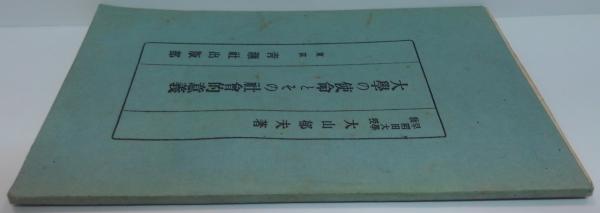 早稻田大學
教授
大山郁夫著
大學の使命とその社會的意義
東京 社出版部